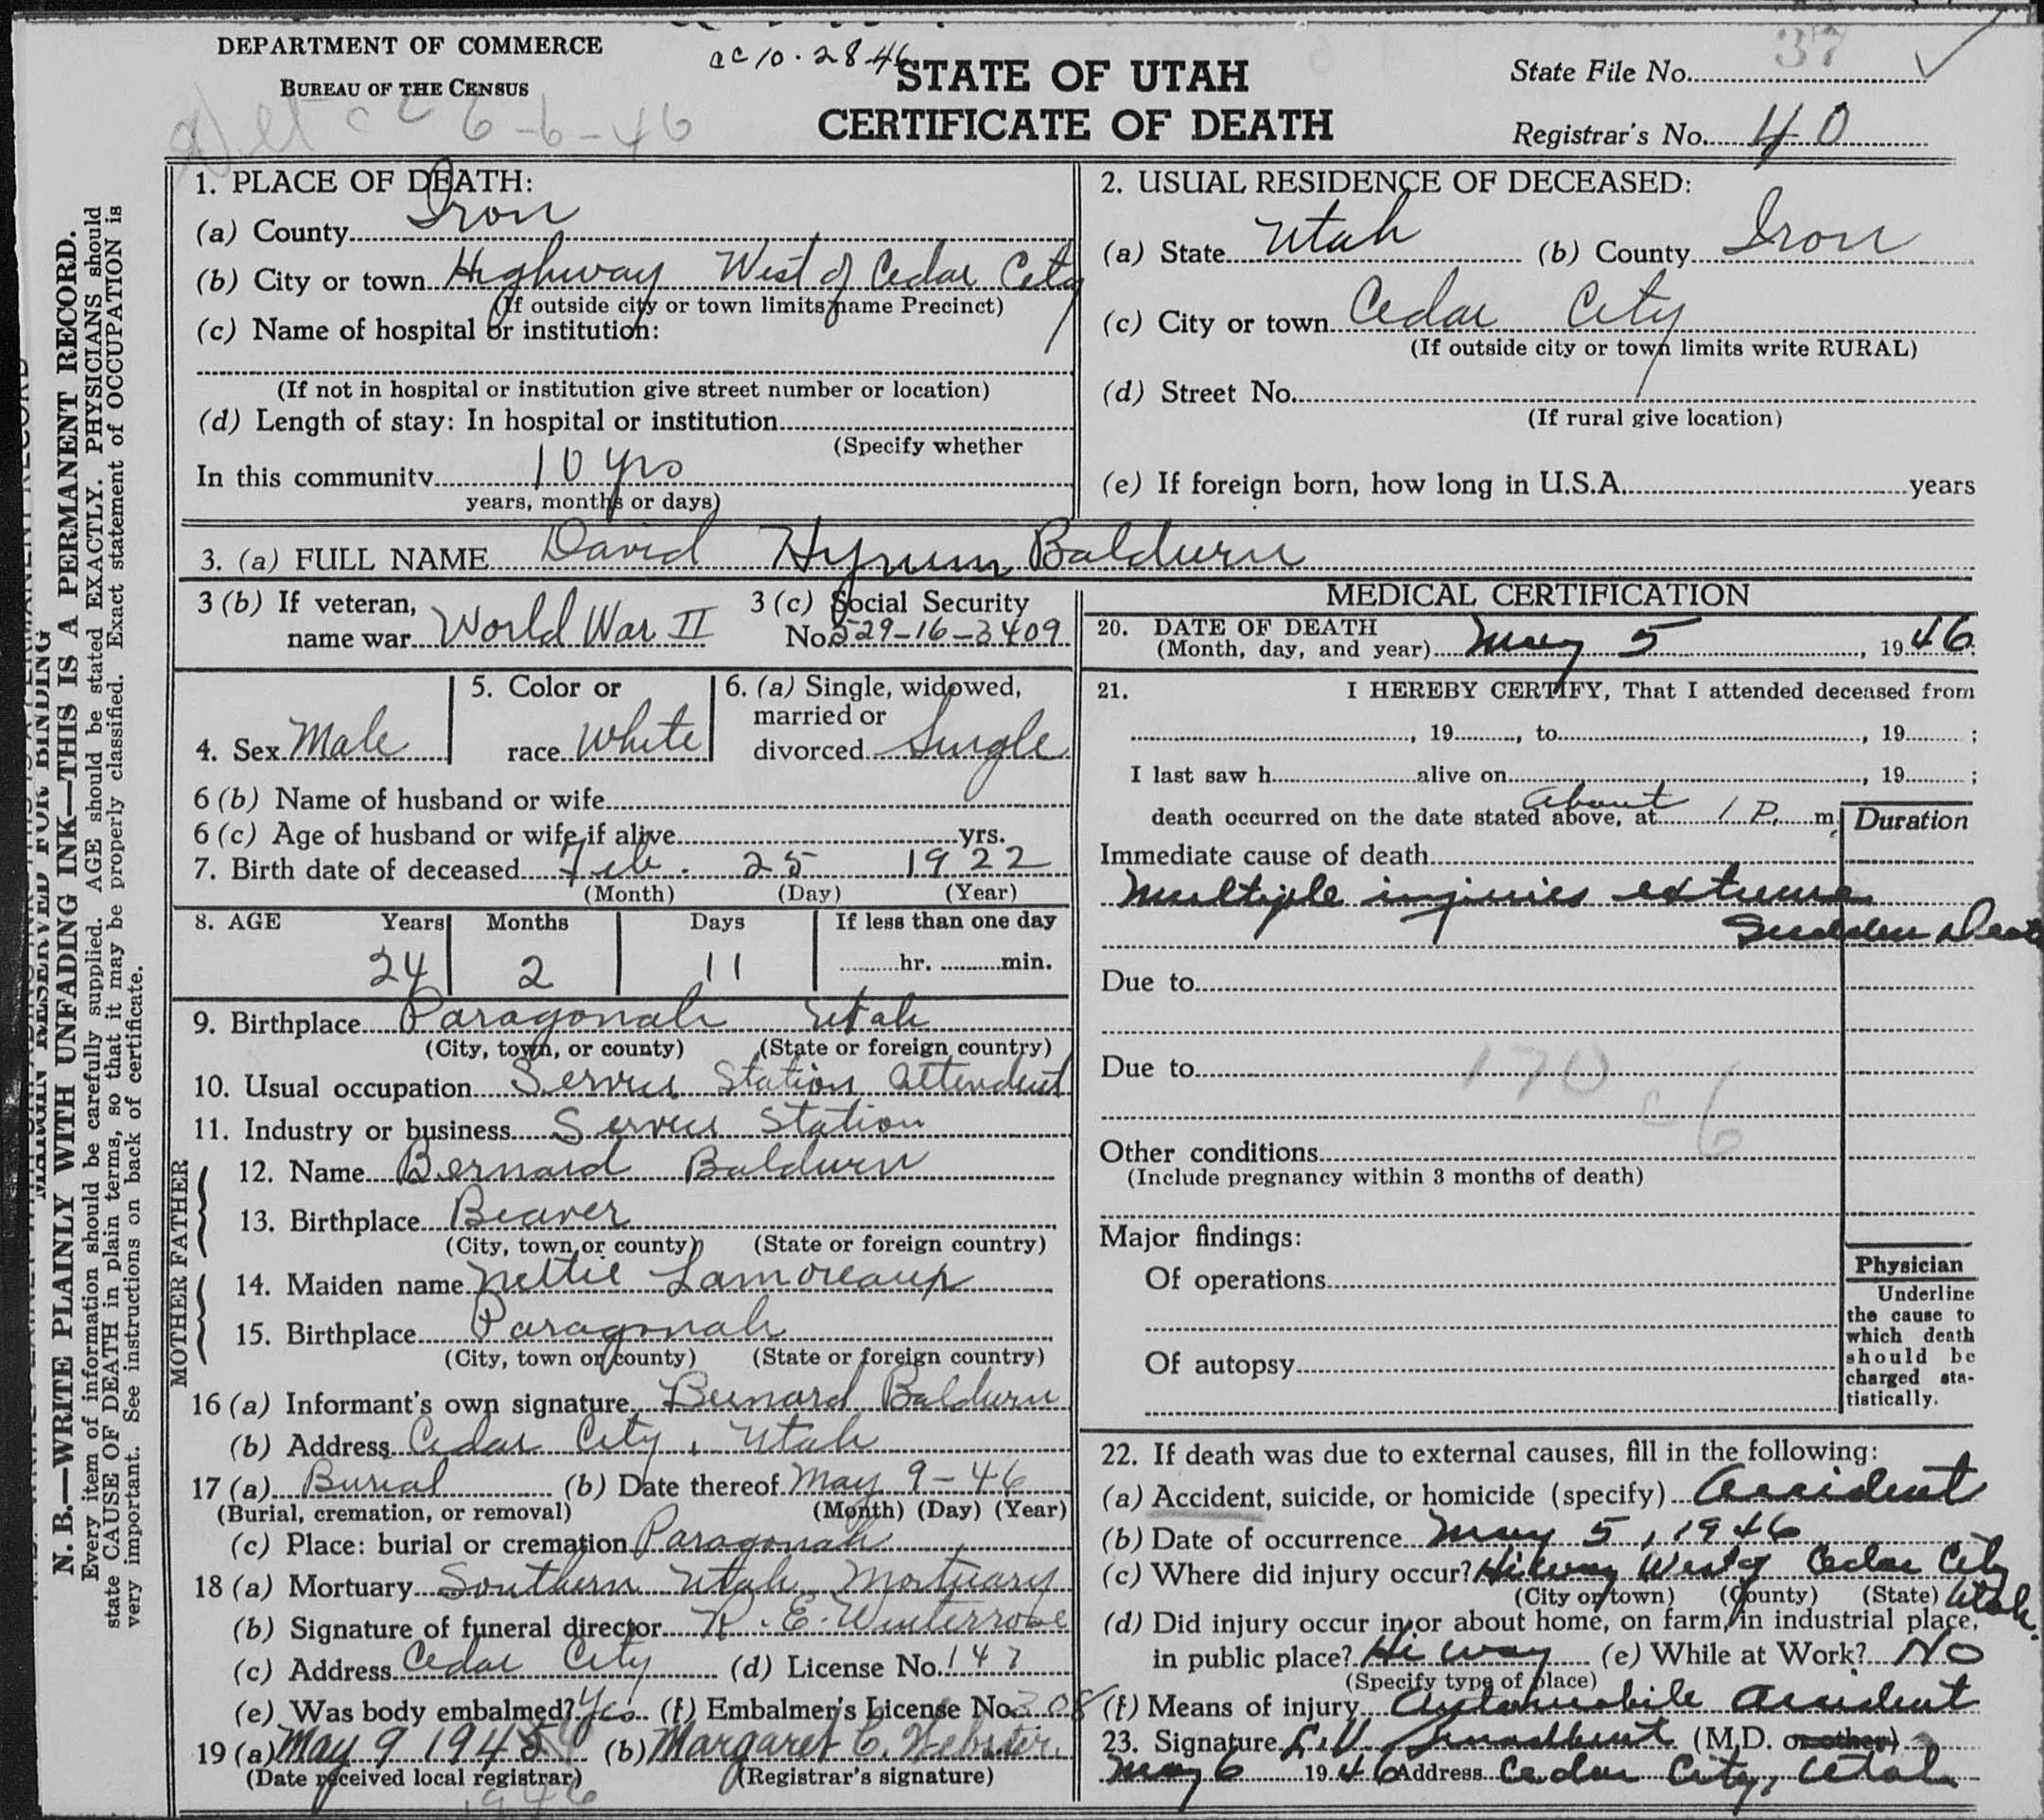 DEPARTMENT OF COMMERCE
BUREAU OF THE CENSUS
10-28-46
6-6-46
STATE OF UTAH
CERTIFICATE OF DEATH
State File No. 37
Registrar's No. 40
MARGIN RESERVED FOR BINDING
N. B.—WRITE PLAINLY WITH UNFADING INK—THIS IS A PERMANENT RECORD.
Every item of information should be carefully supplied. AGE should be stated EXACTLY. PHYSICIANS should
state CAUSE OF DEATH in plain terms, so that it may be properly classified. Exact statement of OCCUPATION is
very important. See instructions on back of certificate.
1. PLACE OF DEATH:
(a) County Iron
(b) City or town Highway West of Cedar City
(If outside city or town limits name Precinct)
(c) Name of hospital or institution:
(If not in hospital or institution give street number or location)
(d) Length of stay: In hospital or institution
(Specify whether
In this community 10 yrs
years, months or days)
2. USUAL RESIDENCE OF DECEASED:
(a) State Utah (b) County Iron
(c) City or town Cedar City
(If outside city or town limits write RURAL)
(d) Street No.
(If rural give location)
(e) If foreign born, how long in U.S.A. years
3. (a) FULL NAME David Hyrum Baldwin
3 (b) If veteran,
name war World War II
3 (c) Social Security
No. 529-16-3409
4. Sex Male
5. Color or
race White
6. (a) Single, widowed,
married or
divorced Single
6 (b) Name of husband or wife
6 (c) Age of husband or wife if alive yrs.
7. Birth date of deceased Feb. 25 1922
(Month) (Day) (Year)
8. AGE Years Months Days If less than one day
24 2 11 hr. min.
9. Birthplace Paragonah Utah
(City, town, or county) (State or foreign country)
10. Usual occupation Service Station Attendent
11. Industry or business Service Station
FATHER
12. Name Bernard Baldwin
13. Birthplace Beaver
(City, town or county) (State or foreign country)
MOTHER
14. Maiden name Nettie Lamoreaux
15. Birthplace Paragonah
(City, town or county) (State or foreign country)
16 (a) Informant's own signature Bernard Baldwin
(b) Address Cedar City, Utah
17 (a) Burial (b) Date thereof May 9-46
(Burial, cremation, or removal) (Month) (Day) (Year)
(c) Place: burial or cremation Paragonah
18 (a) Mortuary Southern Utah Mortuary
(b) Signature of funeral director R. E. Winterrose
(c) Address Cedar City (d) License No. 147
(e) Was body embalmed? Yes (f) Embalmer's License No. 308
19 (a) May 9 1945 (b) Margaret C. Webster
(Date received local registrar) (Registrar's signature)
1946
MEDICAL CERTIFICATION
20. DATE OF DEATH
(Month, day, and year) May 5, 1946
21. I HEREBY CERTIFY, That I attended deceased from
, 19 , to , 19 ;
I last saw h alive on , 19 ;
death occurred on the date stated above, at About 1 P. m. Duration
Immediate cause of death
Multiple injuries extreme
Sudden Death
Due to
Due to
170
c6
Other conditions
(Include pregnancy within 3 months of death)
Major findings:
Of operations
Of autopsy
Physician
Underline
the cause to
which death
should be
charged sta-
tistically.
22. If death was due to external causes, fill in the following:
(a) Accident, suicide, or homicide (specify) Accident
(b) Date of occurrence May 5, 1946
(c) Where did injury occur? Hiway West of Cedar City
(City or town) (County) (State) Utah.
(d) Did injury occur in or about home, on farm, in industrial place,
in public place? Hi way (e) While at Work? No
(Specify type of place)
(f) Means of injury Automobile accident
23. Signature (M.D. or other)
May 6 1946 Address Cedar City, Utah